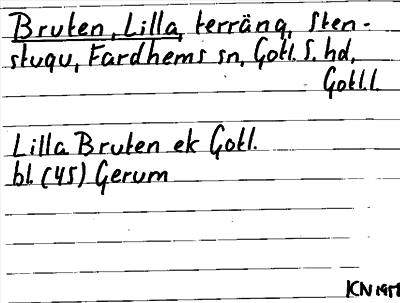 Bruten, Lilla, terräng, Sten-
stugu, Fardhems sn, Gotl. S. hd,
Gotl.l.
Lilla Bruten ek Gotl.
bl. (45) Gerum
KN